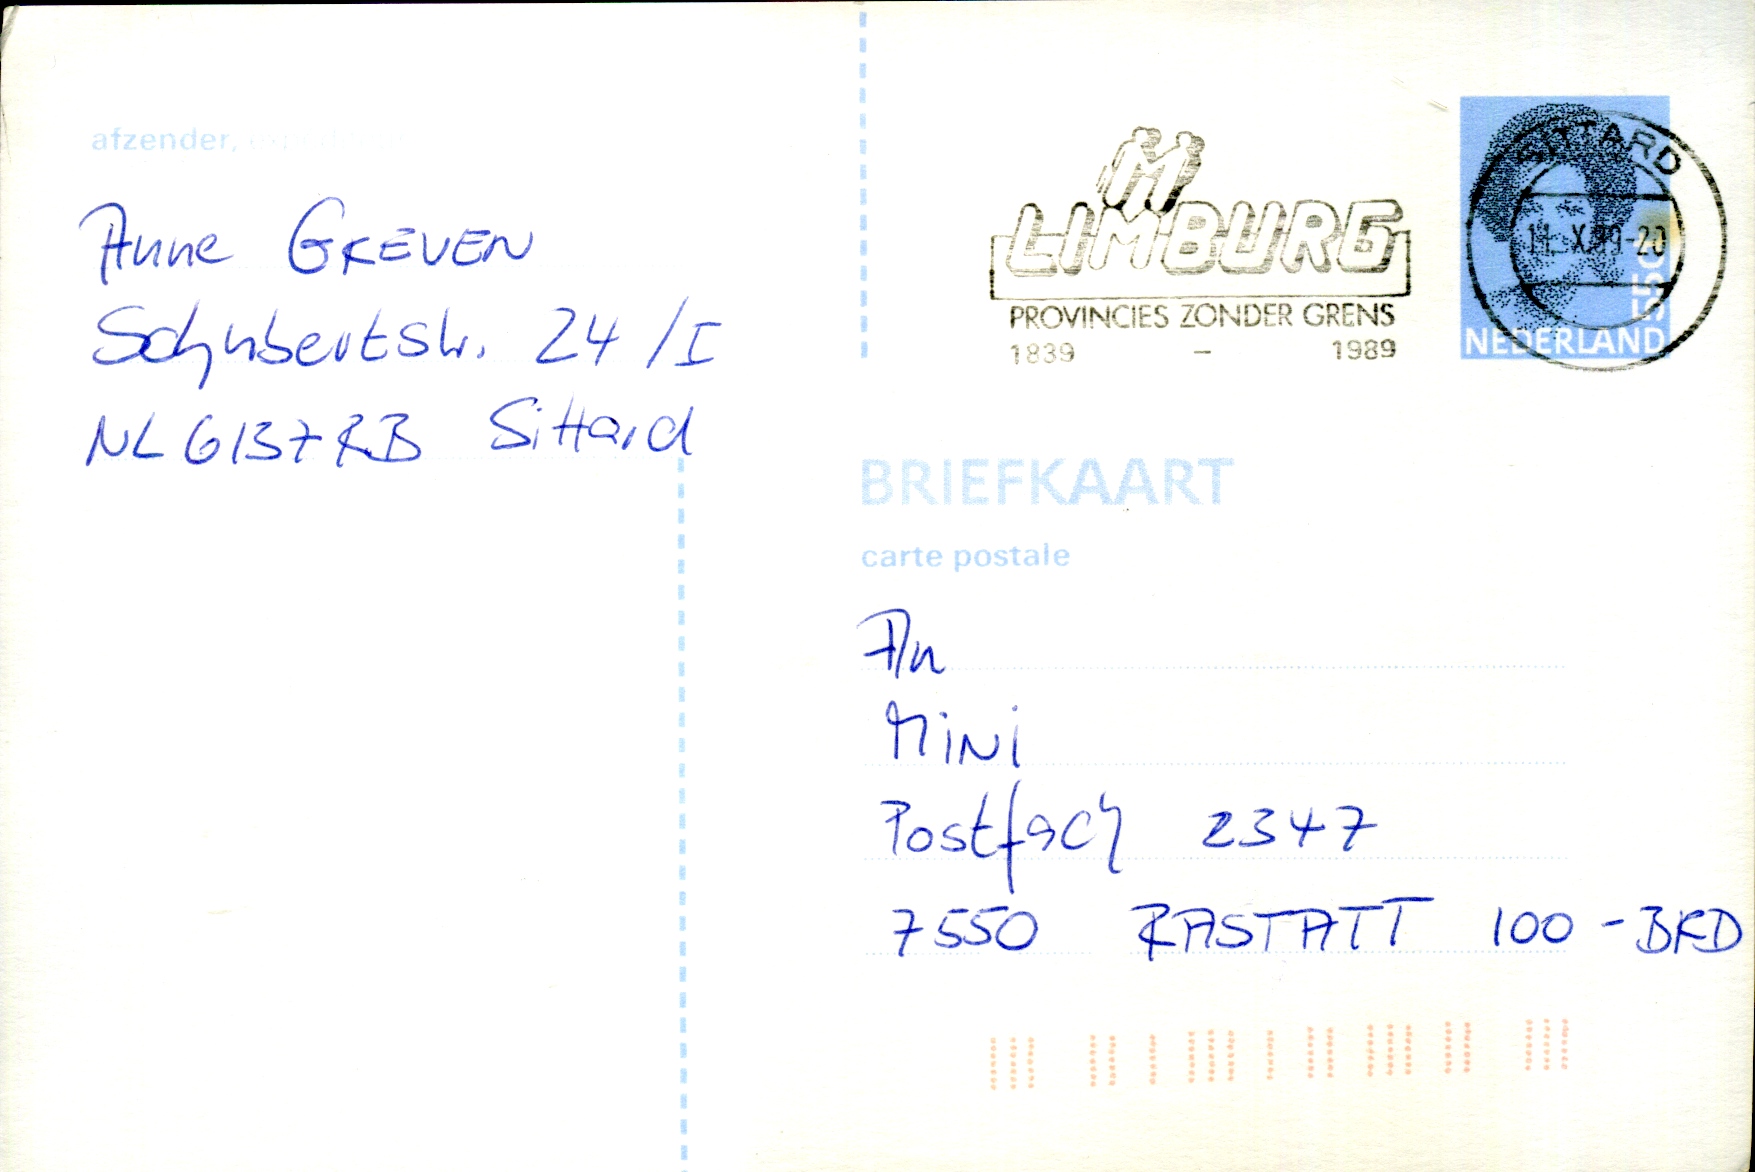 afzender,
Anne GREVEN
Schubertstr. 24/I
NL 6137RB Sittard
LIMBURG
PROVINCIES ZONDER GRENS
1839 – 1989
SITTARD
11.X.89-20
55c
NEDERLAND
BRIEFKAART
carte postale
An
MiNi
Postfach 2347
7550 RASTATT 100 - BRD